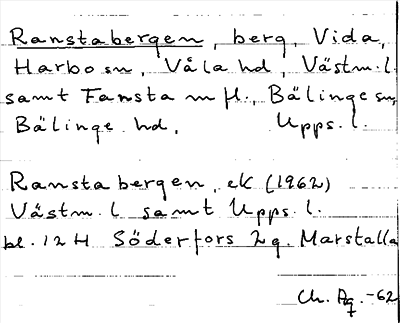 Ranstabergen, berg, Vida,
Harbo sn, Våla hd, Västm. l.
samt Fansta m fl., Bälinge sn,
Bälinge hd, Upps. l.
Ranstabergen, ek (1962)
Västm. l samt Upps. l.
bl. 12 H Söderfors 2g. Marstalla
Ch. Ag. -62